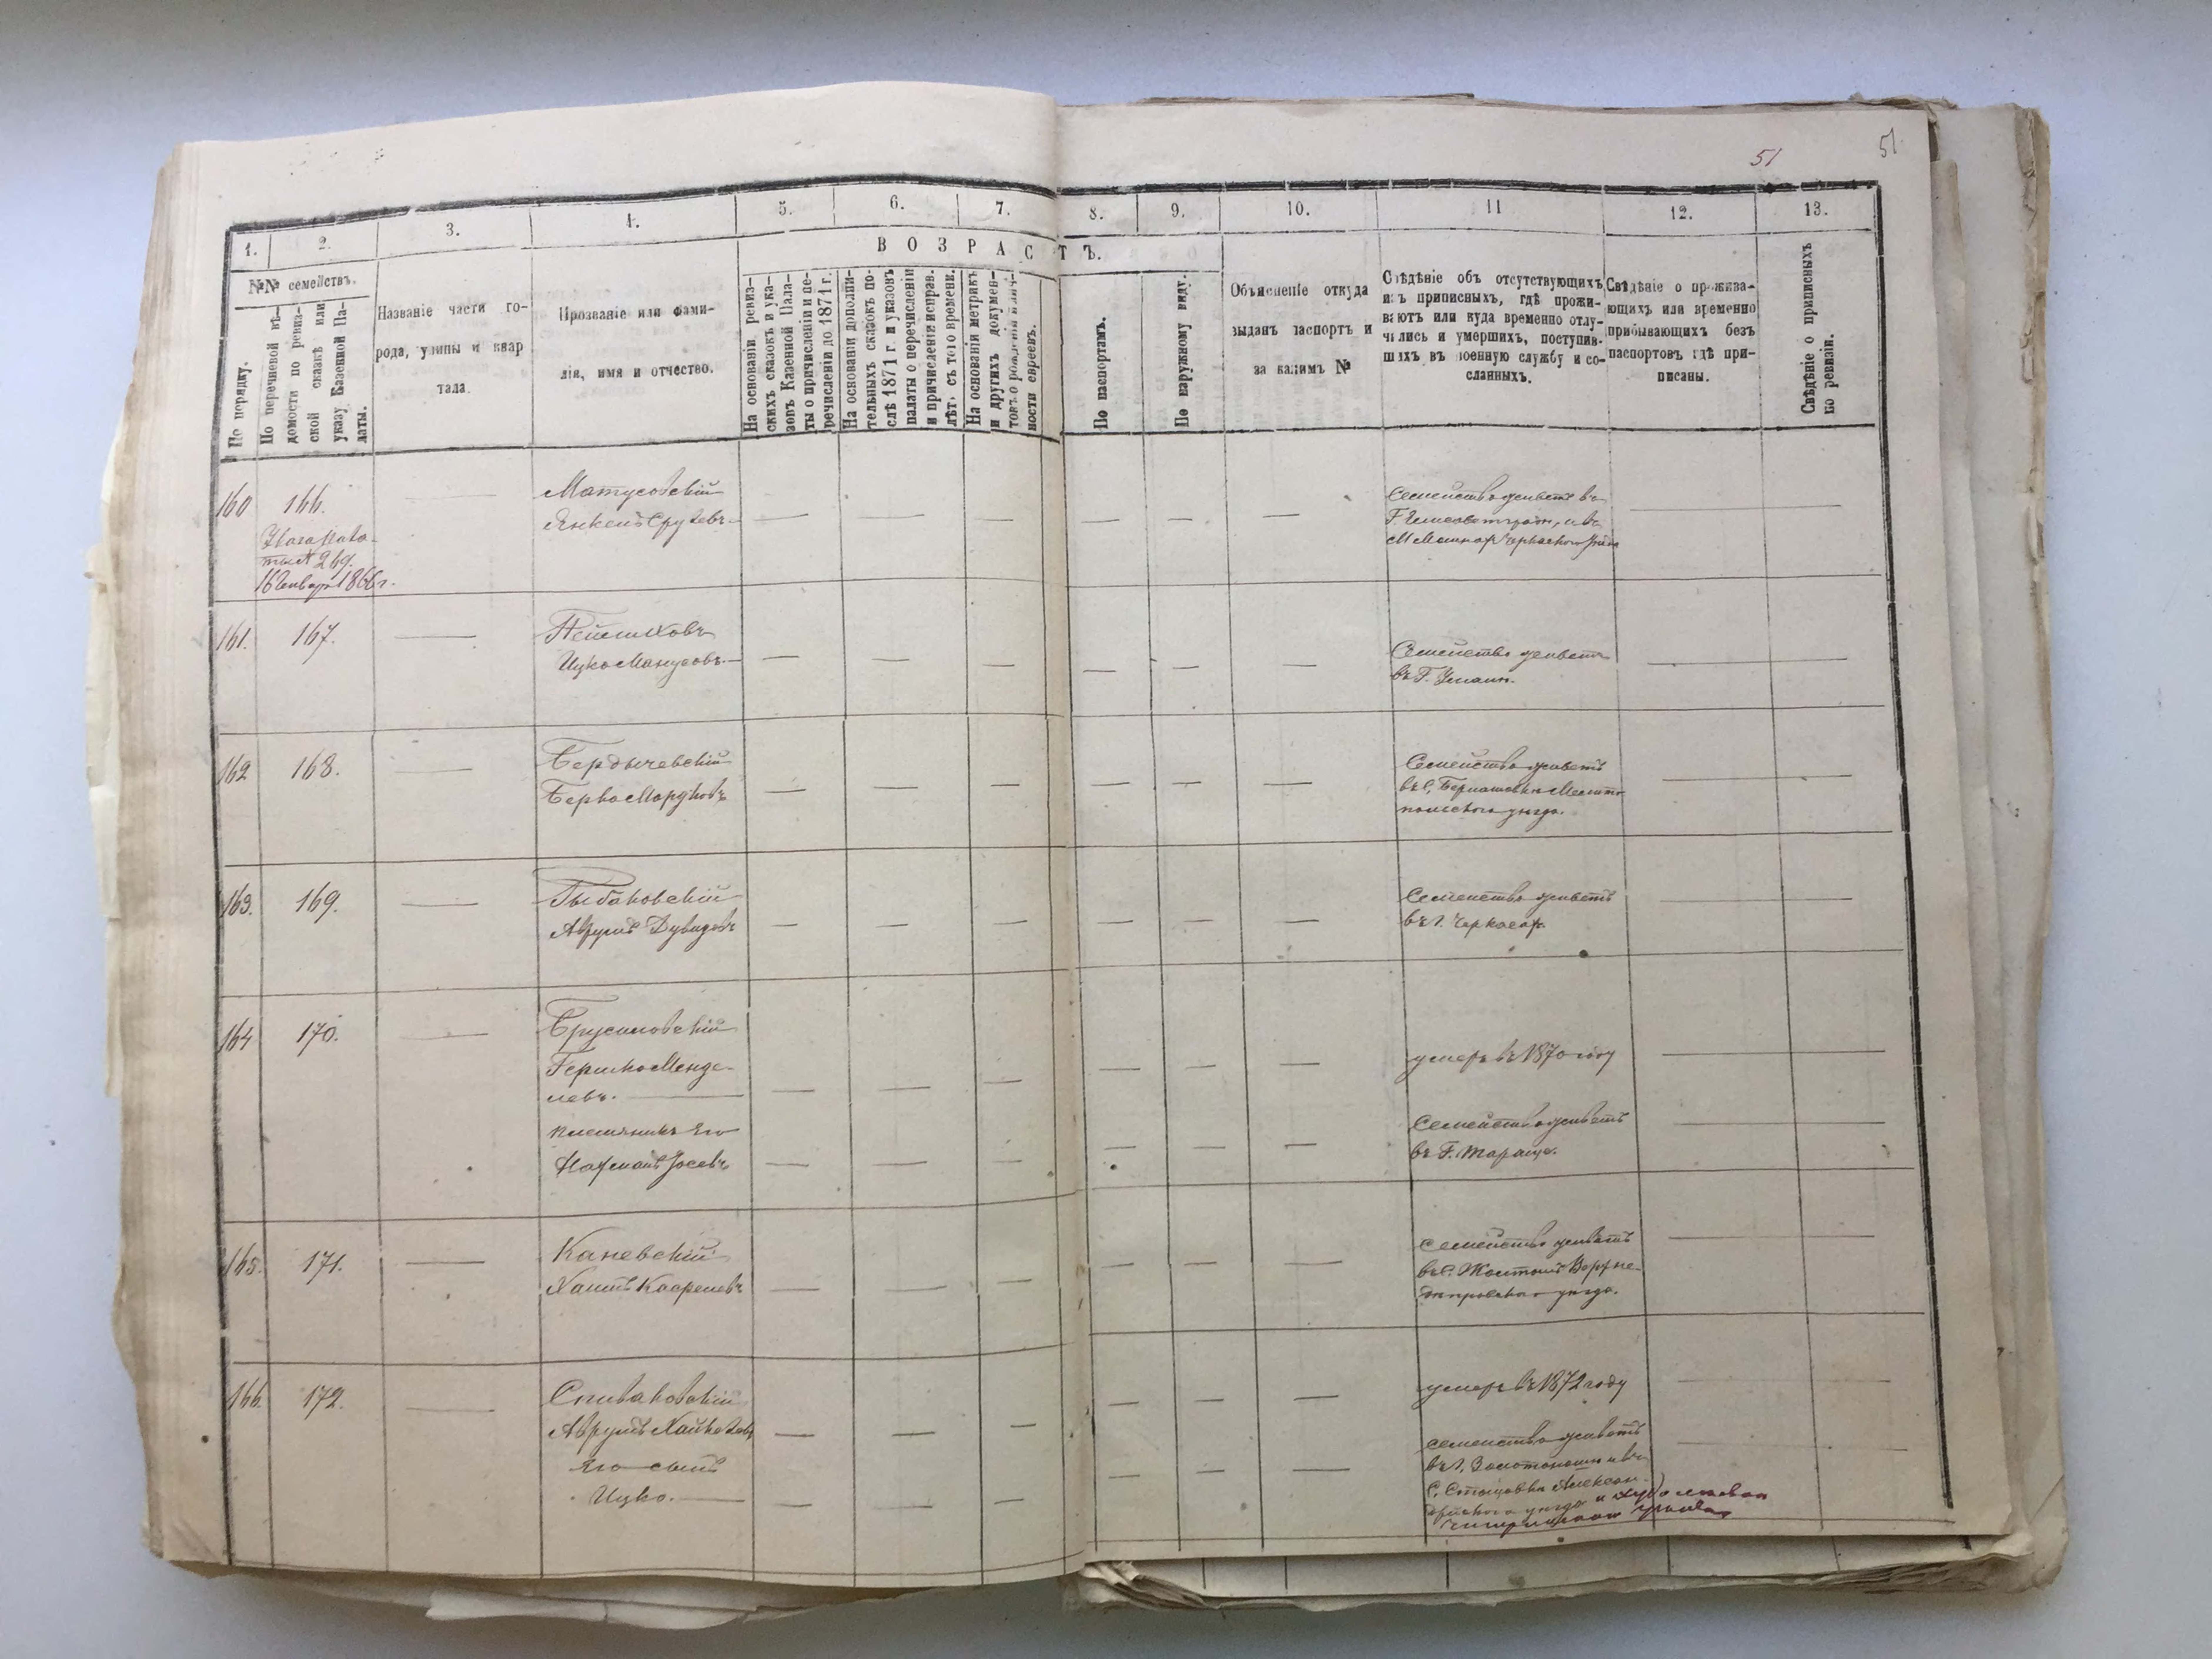 51
51
1.
2.
3.
4.
5.
6.
7.
8.
9.
10.
11
12.
13.
№№ семействъ.
ВОЗРАСТЪ.
По порядку.
По перечневой вѣ-
домости по ревиз-
ской сказкѣ или
указу Казенной Па-
латы.
Названіе части го-
рода, улицы и квар
тала.
Прозваніе или фами-
лія, имя и отчество.
На основаніи ревиз-
скихъ сказокъ и ука-
зовъ Казенной Пала-
ты о причисленіи и пе-
речисленіи до 1871 г.
На основаніи дополни-
тельныхъ сказокъ по-
слѣ 1871 г. и указовъ
палаты о перечисленіи
и причисленіи исправ.
лѣт. съ того времени.
На основаніи метрикъ
и другихъ докумен-
товъ о рожденіи и лич-
ности евреевъ.
По паспортамъ.
По наружному виду.
Объясненіе откуда
выданъ паспортъ и
за какимъ №
Свѣдѣніе объ отсутствующихъ
изъ приписныхъ, гдѣ прожи-
ваютъ или куда временно отлу-
чились и умершихъ, поступив-
шихъ въ военную службу и со-
сланныхъ.
Свѣдѣніе о прожива-
ющихъ или временно
прибывающихъ безъ
паспортовъ гдѣ при-
писаны.
Свѣдѣніе о приписныхъ
по ревизіи.
160
166.
№ 269.
1868 г.
Матусовскій
Янкель Срулевъ
Семейство живетъ въ
Г. Елисоветградѣ, и въ
161.
167.
Ицко Манусовъ.
Семейство живетъ
въ Г. Умани.
162
168.
Бердычевскій
Берко Мордковъ
Семейство живетъ
уѣзда.
163.
169.
Рыбаковскій
Аврумъ Дувидовъ
Семейство живетъ
въ Г. Черкасахъ
164
170.
Брусиловскій
Гершко Менде-
левъ.
племянникъ Его
Нахманъ Іосевъ
умеръ въ 1870 году
Семейство живетъ
въ Г. Тараще.
165.
171.
Каневскій
Хаимъ
Семейство живетъ
въ С. Жолтомъ Верхне-
днѣпровскаго уѣзда.
166.
172.
Спиваковскій
Аврумъ
Его сынъ
Ицко.
умеръ въ 1872 году
семейство живетъ
въ Г. Золотоноши и въ
Алексан-
дрійскаго уѣзда и